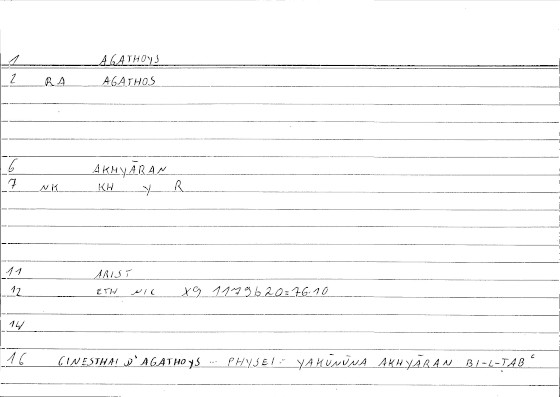 1 AGATHOYS
2 RA AGATHOS
6 AKHYĀRAN
7 NK KH Y R
11 ARIST
12 ETH NIC X9 1179b20=76.10
14
16 GINESTHAI D'AGATHOYS - PHYSEI = YAKŪNŪNA AKHYĀRAN BI-L-ṬABʿ